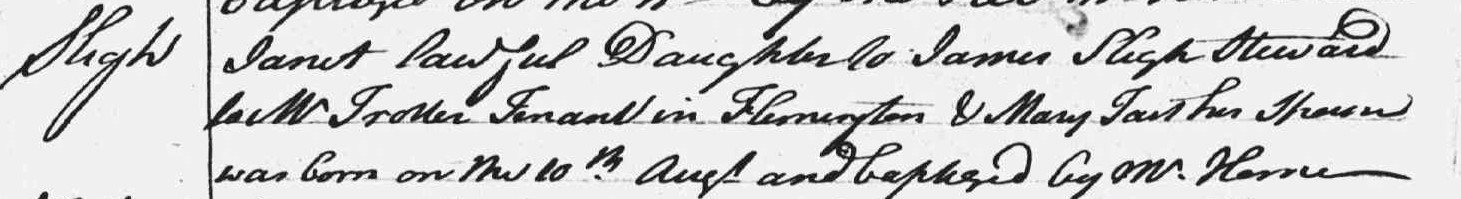 Sligh
Janet lawful Daughter to James Sligh Steward
to Mr Trotter Tenant in Flemington & Mary Tait his Spouse
was born on the 10th Augt and baptized by Mr. Home